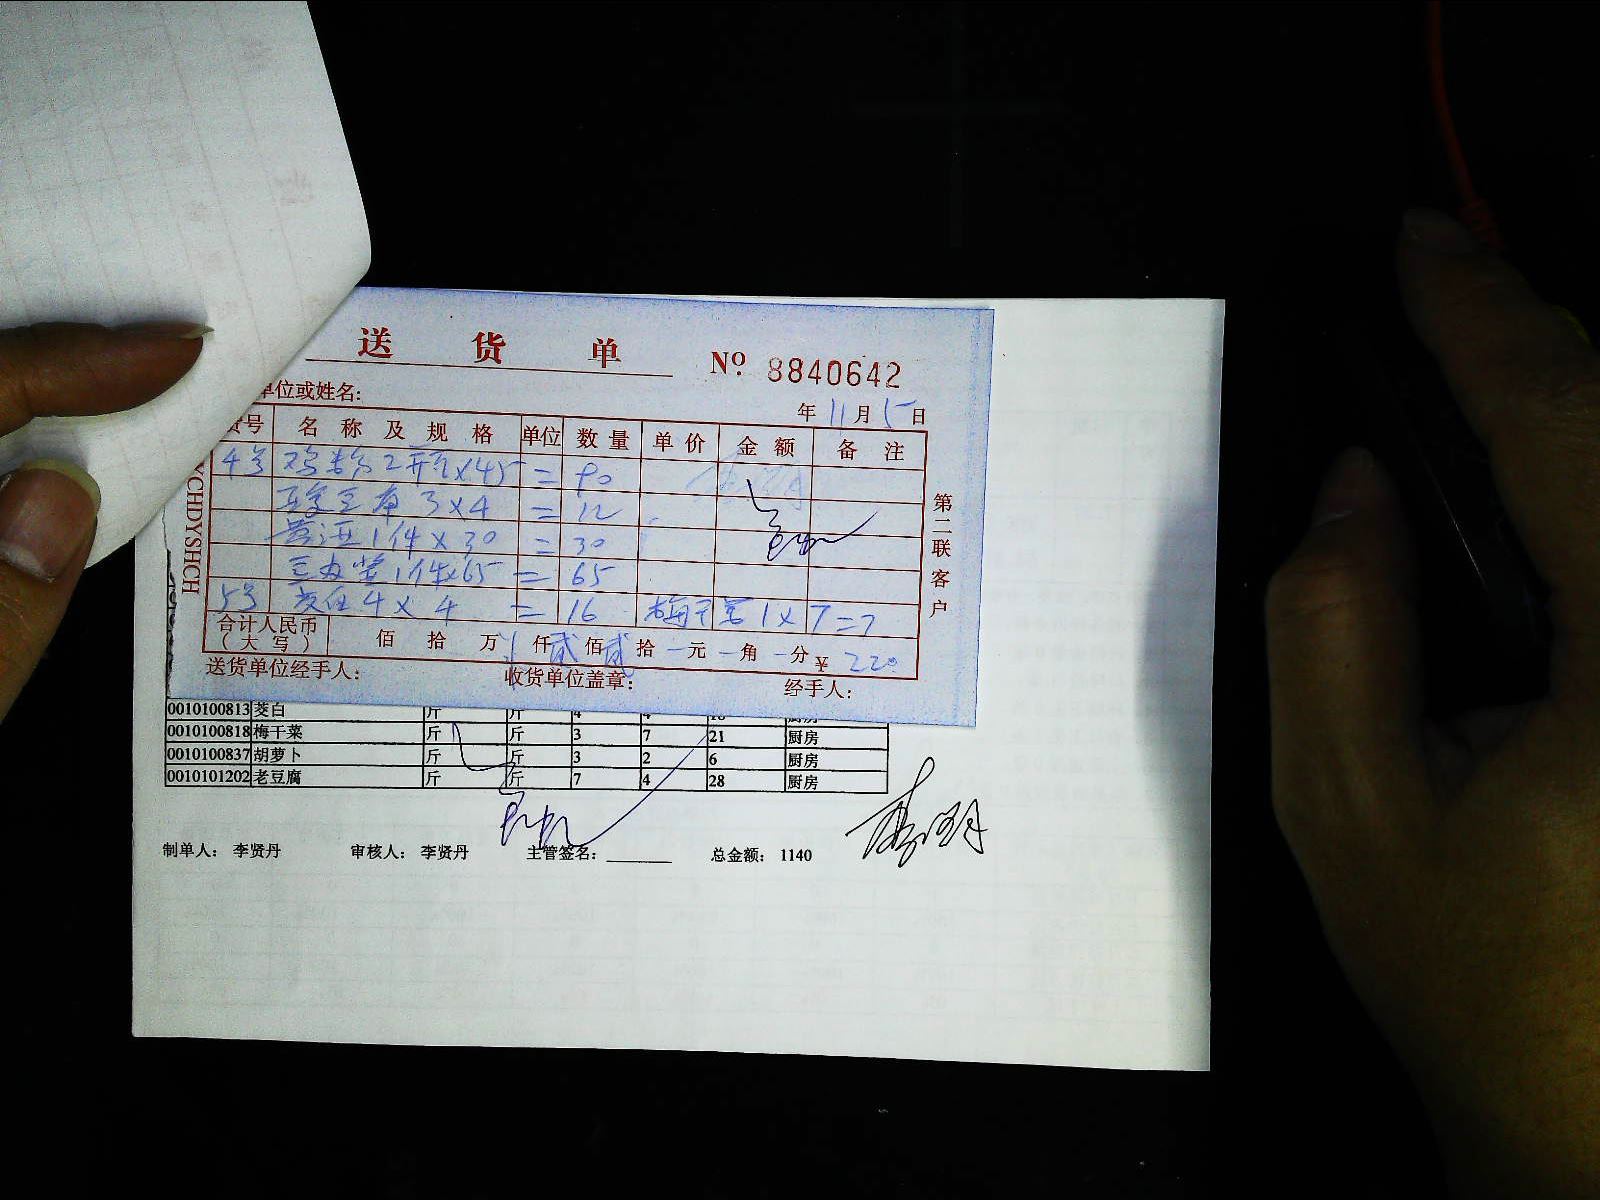 送货单 № 8840642
单位或姓名:
年 11月 5日
货号 名称及规格 单位 数量 单价 金额 备注
4号 鸡 2 ×45 = 90
3×4 = 12
1件×30 = 30
1件×65 = 65
5号 4×4 = 16 梅干菜1×7=7
合计人民币(大写) 佰 拾 万 仟 贰 佰 贰 拾 一 元 一 角 一 分 ¥ 220
送货单位经手人: 收货单位盖章: 经手人:
第二联客户
YCHDYSHCH
0010100813 茭白 斤 斤 4 4 16 厨房
0010100818 梅干菜 斤 斤 3 7 21 厨房
0010100837 胡萝卜 斤 斤 3 2 6 厨房
0010101202 老豆腐 斤 斤 7 4 28 厨房
制单人: 李贤丹 审核人: 李贤丹 主管签名: 总金额: 1140